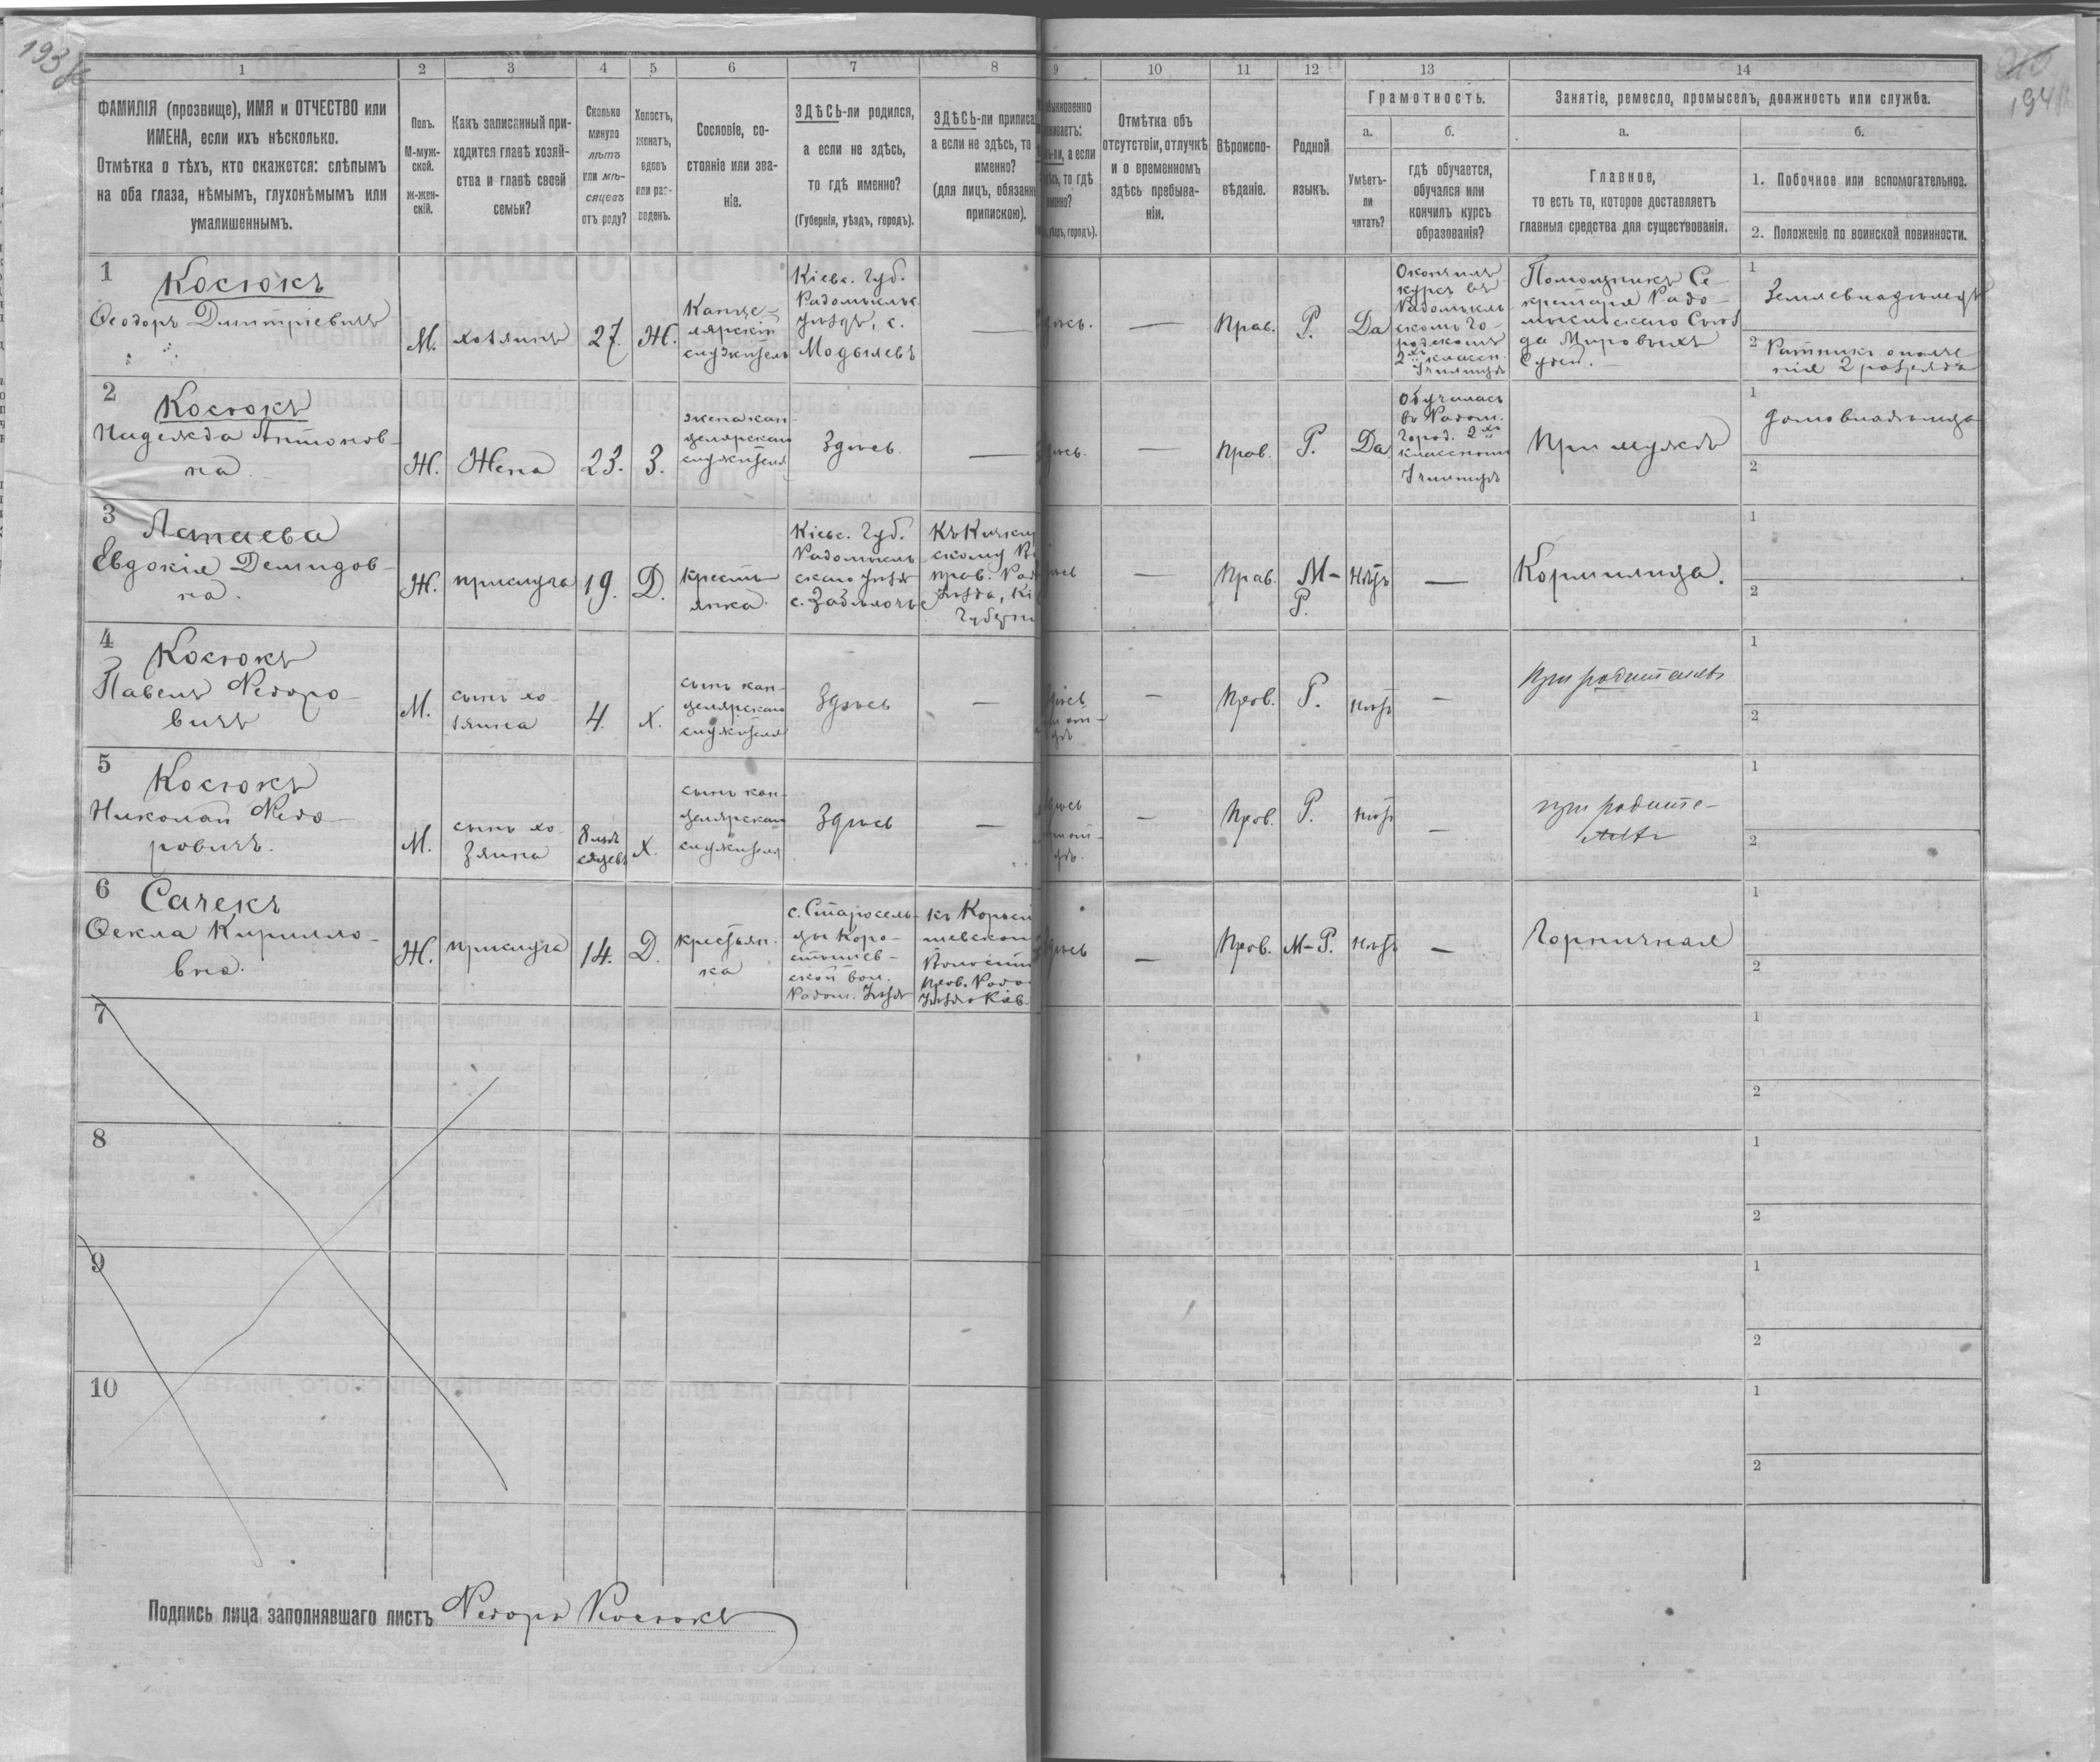 193
194
1
2
3
4
5
6
7
8
9
10
11
12
13
14
ФАМИЛІЯ (прозвище), ИМЯ и ОТЧЕСТВО или
ИМЕНА, если ихъ нѣсколько.
Отмѣтка о тѣхъ, кто окажется: слѣпымъ
на оба глаза, нѣмымъ, глухонѣмымъ или
умалишеннымъ.
Полъ.
М-муж-
ской.
ж-жен-
скій.
Какъ записанный при-
ходится главѣ хозяй-
ства и главѣ своей
семьи?
Сколько
минуло
лѣтъ
или мѣ-
сяцевъ
отъ роду?
Холостъ,
женатъ,
вдовъ
или раз-
веденъ.
Сословіе, со-
стояніе или зва-
ніе.
ЗДѢСЬ-ли родился,
а если не здѣсь,
то гдѣ именно?
(Губернія, уѣздъ, городъ).
ЗДѢСЬ-ли приписа
а если не здѣсь, то
именно?
(для лицъ, обязанн
припискою).
быкновенно
живаетъ:
а если
то гдѣ
именно?
уѣздъ, городъ).
Отмѣтка объ
отсутствіи, отлучкѣ
и о временномъ
здѣсь пребыва-
ніи.
Вѣроиспо-
вѣданіе.
Родной
языкъ.
Грамотность.
а.
Умѣетъ-
ли
читать?
б.
гдѣ обучается,
обучался или
кончилъ курсъ
образованія?
Занятіе, ремесло, промыселъ, должность или служба.
а.
Главное,
то есть то, которое доставляетъ
главныя средства для существованія.
б.
1. Побочное или вспомогательное.
2. Положеніе по воинской повинности.
1
Косюкъ
Ѳеодоръ Дмитріевичъ
М.
хозяинъ
27.
Ж.
Канце-
лярскій
служитель
Кіевс. Губ.
Радомысльс.
уѣздъ, с.
—
Прав.
Р.
Да
Окончилъ
курсъ въ
Радомысль
скомъ Го-
родскомъ
2хъ классн.
Училищѣ
Помощникъ Се-
кретаря Радо-
мысльскаго Съѣз
да Мировыхъ
Судей.
1
Землевладѣлецъ
2
Ратникъ ополче
нія 2 разряда
2
Косюкъ
Надежда Антонов-
на.
Ж.
Жена
23.
З.
жена кан-
целярскаго
служителя
Здѣсь
—
—
Прав.
Р.
Да
Обучалась
въ Радом.
Город. 2хъ
классномъ
Училищѣ
При мужѣ
1
домовладѣлица
2
3
Евдокія Демидов-
на.
Ж.
прислуга
19.
Д.
кресть-
янка.
Кіевс. Губ.
Радомысль
скаго уѣзда
с. Заболочье
—
Прав.
М-
Р.
Нѣтъ
—
Кормилица.
1
2
4
Косюкъ
Павелъ Ѳедоро-
вичъ
М.
сынъ хо-
зяина
4.
Х.
сынъ кан-
целярскаго
служителя
Здѣсь
—
—
Прав.
Р.
нѣтъ
—
при родителяхъ
1
2
5
Косюкъ
Николай Ѳедо-
ровичъ.
М.
сынъ хо-
зяина
8 мѣ
сяцевъ
Х.
сынъ кан-
целярскаго
служителя
Здѣсь
—
—
Прав.
Р.
нѣтъ
—
при родите-
ляхъ
1
2
6
Сачекъ
Ѳекла Кирилло-
вна.
Ж.
прислуга
14.
Д.
крестьян-
ка
с. Старосель-
цы Коро-
стышев-
ской вол.
Радом. уѣзда
—
Прав.
М-Р.
нѣтъ
—
Горничная
1
2
7
1
2
8
1
2
9
1
2
10
1
2
Подпись лица заполнявшаго листъ Ѳедоръ Косюкъ